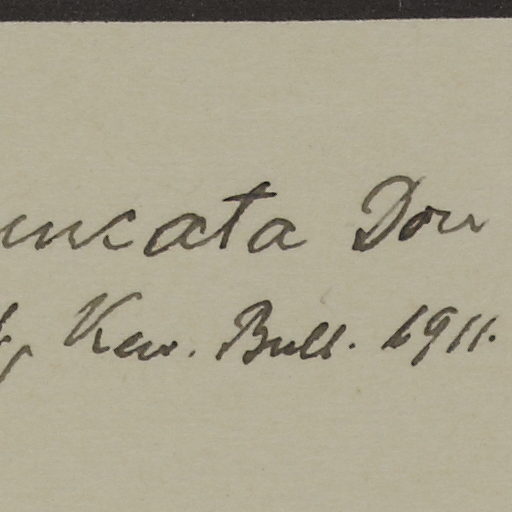 uncata Don
Kew. Bull. 1911.